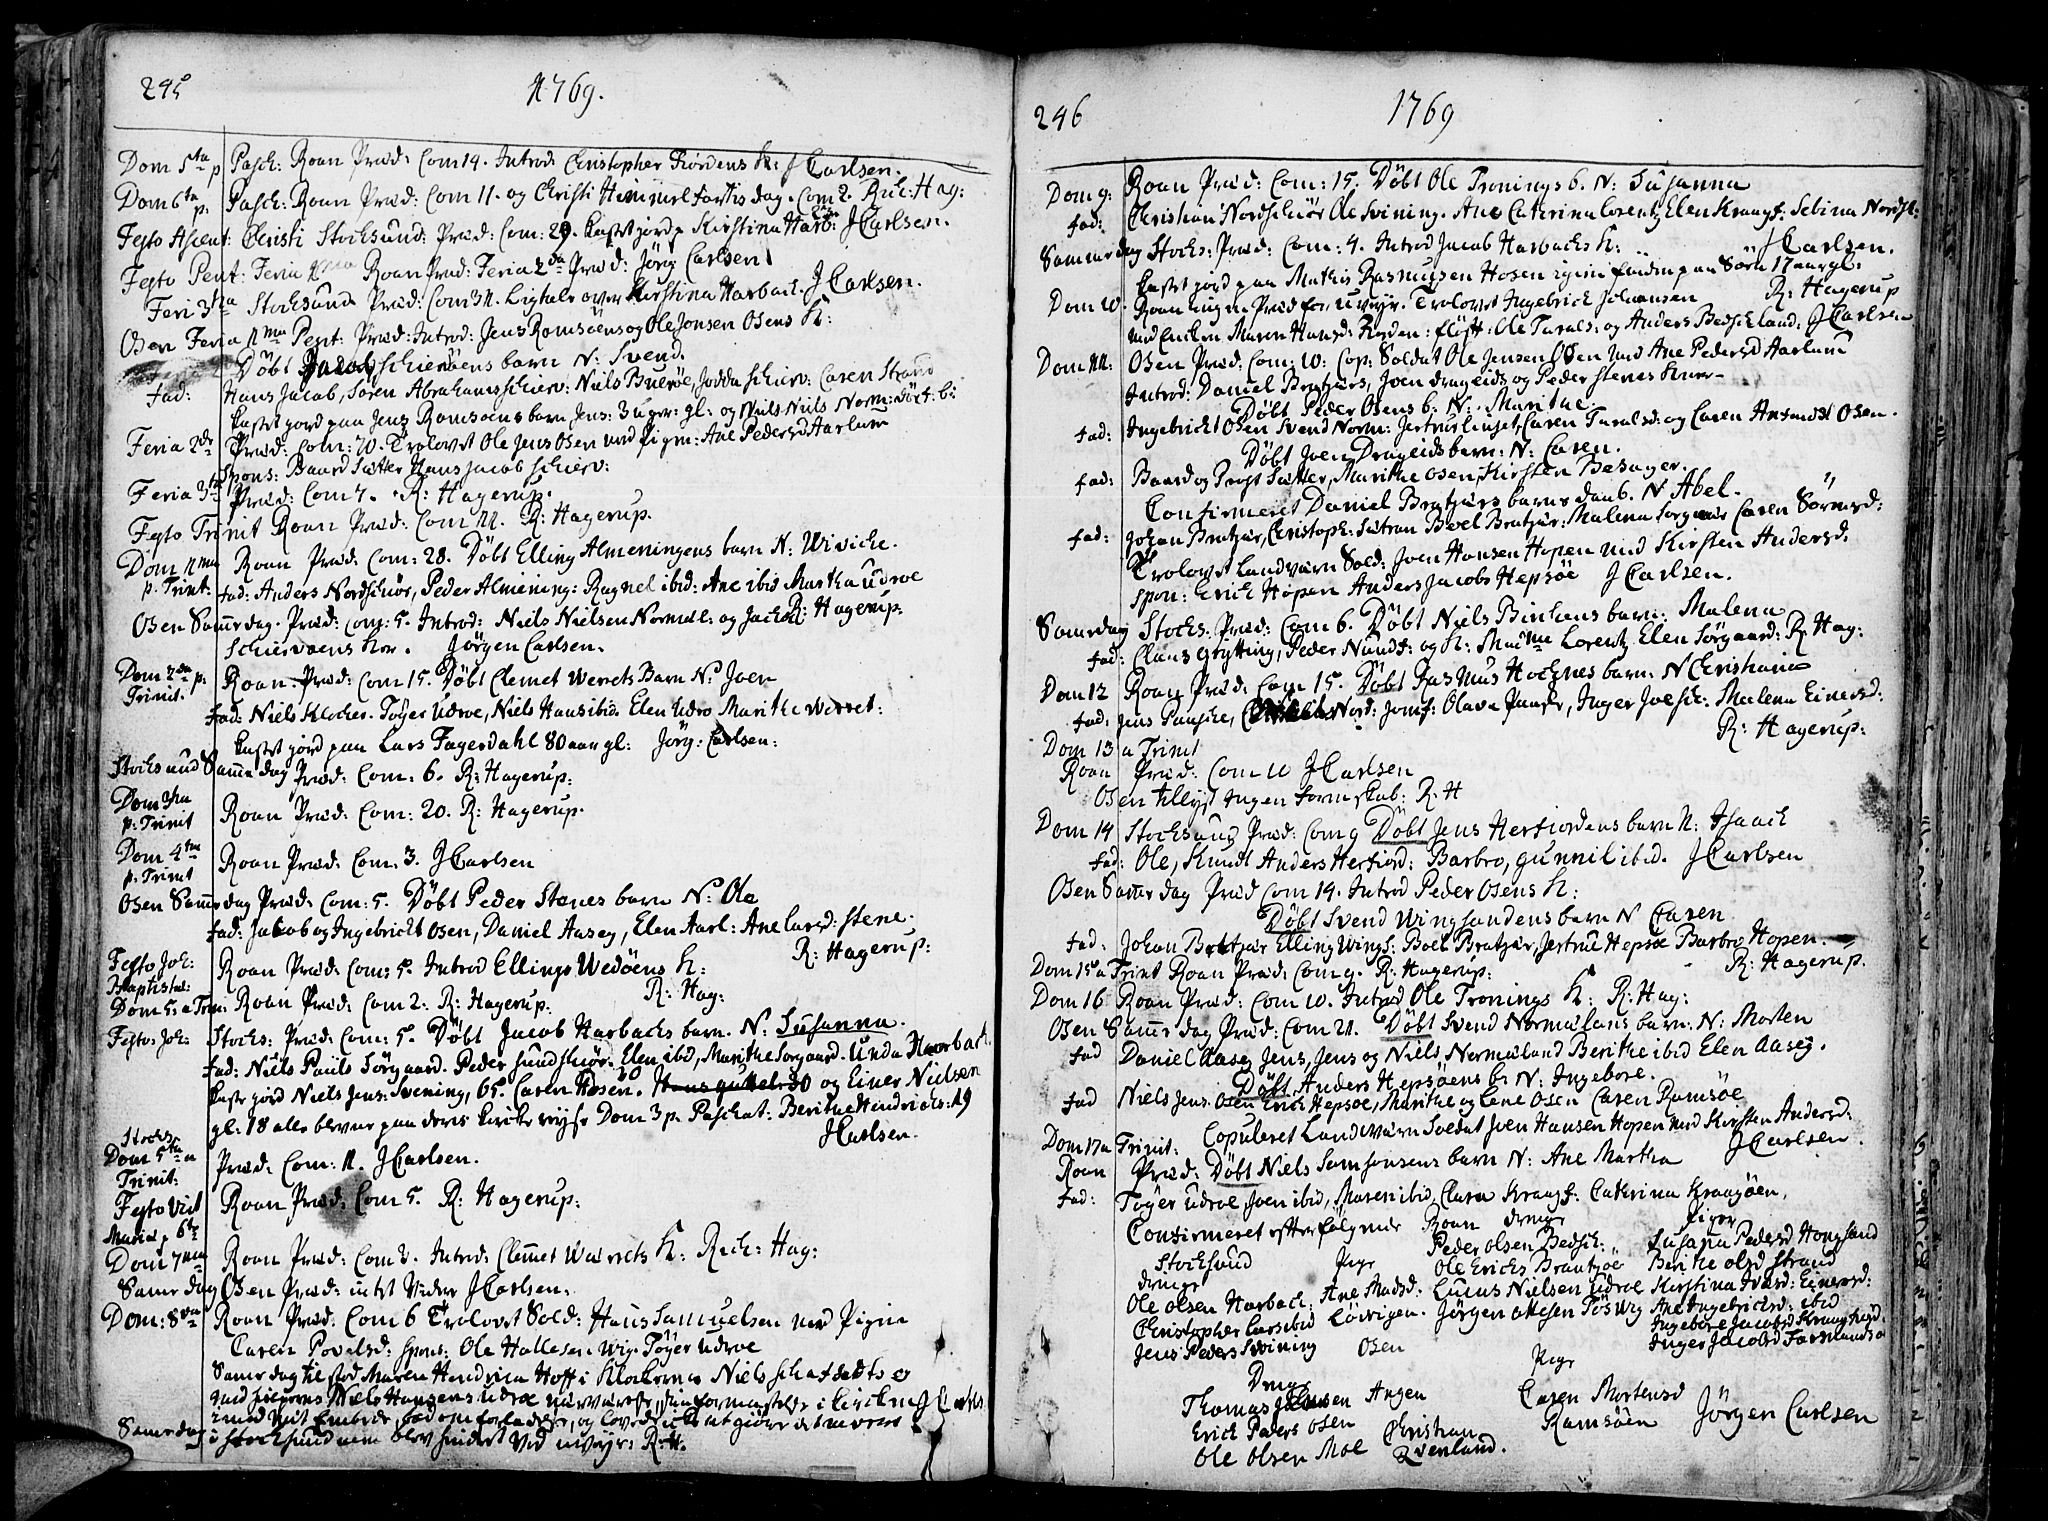 245
1769.
Dom 5ta p Pasch: Roan Præd: Com 14. Introd Christopher Fiordens K: JCarlsen.
Dom 6ta p: Pasch: Roan Præd: Com 11. og Christi Himmelfartis dag. Com 2. Rich: Hag:
Festo Ascent: Christi Stocksund: Præd: Com: 29. Kastet jord p Kirstina Harb: JCarlsen.
Festo Pent: Feria 1ma Roan Præd: Feria 2da Præd: Jörg Carlsen
Feri 3tia Stocksund Præd: Com 31. Ligtale over Kirstina Harbach. JCarlsen.
Osen Feria 1ma Pent: Præd: Introd: Jens Ramsöens og Ole Jonsen Osens K:
Döbt Jacob Schieröens barn N: Svend.
Fad: Hans Jacob, Sören Abrahams Schierv: Niels Buröe, Jodda Schierv: Caren Strand
Kastet jord paa Jens Ramsoens barn Jens: 3 uger: gl: og Niels Niels Norm:
Feria 2da Præd: Com: 20. Trolovet Ole Jens Osen med Pigen: Ane Pedersd Aarlum
Spons: Baard Sætter Hans Jacob Schierv:
Feria 3tia Præd: Com 7. R: Hagerup.
Festo Trinit Roan Præd: Com 11. R: Hagerup.
Dom 1ma p. Trinit: Roan Præd: Com: 28. Döbt Elling Almeningens barn N: Wiviche.
Fad: Anders Nordschiör, Peder Almening: Ragnel ibid: Ane ibid Martha Udroe
Osen Samrdag. Præd: Com: 5. Introd: Niels Nielsen Normel: og Jacob R: Hagerup.
Schiervoens Kor. Jörgen Carlsen.
Dom 2da p: Trinit. Roan Præd: Com 15. Döbt Clemet Werets Barn N: Joen
Fad: Niels Klocker. Töger Udroe, Niels Hans ibid. Elen Udro Marithe Werret:
Kastet jord paa Lars Fagerdahl 80 aar gl: Jörg: Carlsen:
Stocksund Samrdag Præd: Com: 6. R: Hagerup:
Dom 3tia p: Trinit Roan Præd: Com: 20. R: Hagerup.
Dom 4ta p. Trinit Roan Præd: Com: 3. JCarlsen
Osen Samrdag Præd: Com: 5. Döbt Peder Stenes barn N: Ole
Fad: Jacob og Ingebricht Osen, Daniel Aaseg, Elen Aarl: Ane Larsd: Stene.
Festo Joh: Baptistæ: Roan Præd: Com: 5. Introd Ellings Wedöens K: R: Hagerup:
Dom 5: a Trin: Roan Præd: Com 2: R: Hagerup. R: Hag:
Festo: Joh: Stocks: Præd: Com: 5. Döbt Jacob Harbachs barn. N: Susanna.
Fad: Niels Pauls Sörgaard. Peder Sundskiör. Elen ibid, Marithe Sorgaard. Unda Haarbach
Kaste jord Niels Jens: Svening, 65. Caren Hosen. 30 og Einer Nielsen
gl: 18 alle blevne paa deres Kirke reyse Dom 3 p. Paschat: Berithe Hendrichs: 19
Stocks JCarlsen.
Dom 5ta a Trinit: Præd: Com: 11. JCarlsen.
Festo Visit Mariæ Roan Præd: Com 5. R: Hagerup:
Dom 7ma Roan Præd: Com 2. Introd: Clemet Werrets K: Rich: Hag:
Samrdag Osen Præd: intet Videre JCarlsen.
Dom: 8va Roan Præd: Com 6 Trolovet Sold: Hans Samuelsen med Pigen
Caren Povelsd: Spons: Ole Hallesen. Wig. Töger Udroe
Samrdag tilstod Maren Hendrica Hoff i Klockerens Niels Schatvedts
Samrdag i Stocksund blev hindret Ved uveyr: R:H:
246
1769
Dom 9: Roan Præd: Com: 15. Döbt Ole Tronings b. N: Susanna
Fad: Christian Nordschiör Ole Svining. Ane Caterina Lorentz Elen Kraagf: Sebina Nordsk:
Samrdag Stocks: Præd: Com: 4. Introd Jacob Harbachs K: JCarlsen.
Kastet jord paa Mathis Rasmusen Hosen igien funden paa Söen 17 aar gl:
Dom 10. Roan ingen Præd for uveyr. Trolovet Ingebrich Johansen R: Hagerup
med Enken Maren Hansd: Ole Taralds: og Anders Bedschland: JCarlsen
Dom 11: Osen Præd: Com: 10: Cop: Soldat Ole Jensen Osen med Ane Pedersd Aarlum
Introd: Daniel Bratjærs, Joen drageids og Peder Stenes Koner
Döbt Peder Osens b: N: Marithe.
Fad: Ingebricht Osen Svend Norm: Jertru Caren Taralsd: og Caren Antonsd Osen.
Döbt Joen Drageids barn: N: Caren.
Fad: Baard og Troyt Sætter, Marithe Osen, Kirsten Besager.
Confirmeret Daniel Bratjærs barns daab. N Abel.
Fad: Johan Bratjær, Christoph: Sætran Boel Bratjær: Malena Caren Sörensd:
Trolovet Landværn Sold: Joen Hansen Hopen med Kirsten Andersd.
Spon: Erich Hopen Anders Jacobs Hepsöe JCarlsen.
Samrdag Stocks. Præd: Com 6. Döbt Niels barn: Malena
Fad: Claus Grytting, Peder Sundf: og K: Lorentz Elen Sörgaard: R: Hag:
Dom 12 Roan Præd: Com 15. Döbt Rasmus Hochnes barn: N Christian
Fad: Jens Pausche, Nord: Jomf: Olava Inger Malena Einersd:
R: Hagerup:
Dom 13 a Trinit
Roan Præd: Com 10 JCarlsen
Osen tillyst Ingen formskab: R:H
Dom 14 Stocksund Præd: Com 9 Döbt Jens Herfiordens barn N: Isaach
Fad: Ole, Knud Anders Herfiord: Barbro, Gunnil ibid. JCarlsen
Osen Samrdag Præd Com 14. Introd Peder Osens K:
Döbt Svend Wingsandens barn N Caren
Fad: Johan Bratjær Elling Wings: Boel Bratjær, Jertrue Hepsöe Barbro Hopen.
Dom 15 a Trint Roan Præd: Com 9. R: Hagerup: R: Hagerup.
Dom 16 Roan Præd: Com 10. Introd Ole Tronings K: R: Hag:
Osen Samrdag Præd: Com 21. Döbt Svend Normelans barn: N: Morten
Fad Daniel Aaseg Jens, Jens og Niels Normeland Berithe ibid Elen Aaseg.
Döbt Anders Hepsöens b: N: Ingebore.
Fad Niels Jens: Osen Erich Hepsöe, Marithe og Lene Osen Caren Ramsöe
Copuleret Landværn Soldat Joen Hansen Hopen med Kirsten Andersd:
Dom 17 a Trinit: JCarlsen.
Roan Præd: Döbt Niels Samsonsens barn N: Ane Martha
Fad: Töger Udroe, Joen ibid, Maren ibid, Clara Kraagf: Cathrina Kraagöen.
Confirmeret efterfölgende Roan drenge Piger
Stocksund Piger Peder Olsen Bedsch: Susana Pedersd Hongsand
drenge Ole Erichs Brantzöe Berithe Olsd Strand
Ole Olsen Harbach: Ane Madsd: Lucus Nielsen Udroe Kirstina Ivarsd: Einersd:
Christopher Lars ibid Löivigen. Jörgen Ottesen Föswig Ane Ingebrichtsd: ibid
Jens Peders Svining Osen Ingebore Jacobsd Kraagfiord
Inger Jacobsd Farmands o
Drenge Piger
Thomas Angen Caren Mortensd
Erich Peders Osen Christian Ramsöen Jörgen Carlsen
Ole Olsen Moe Qvenland.